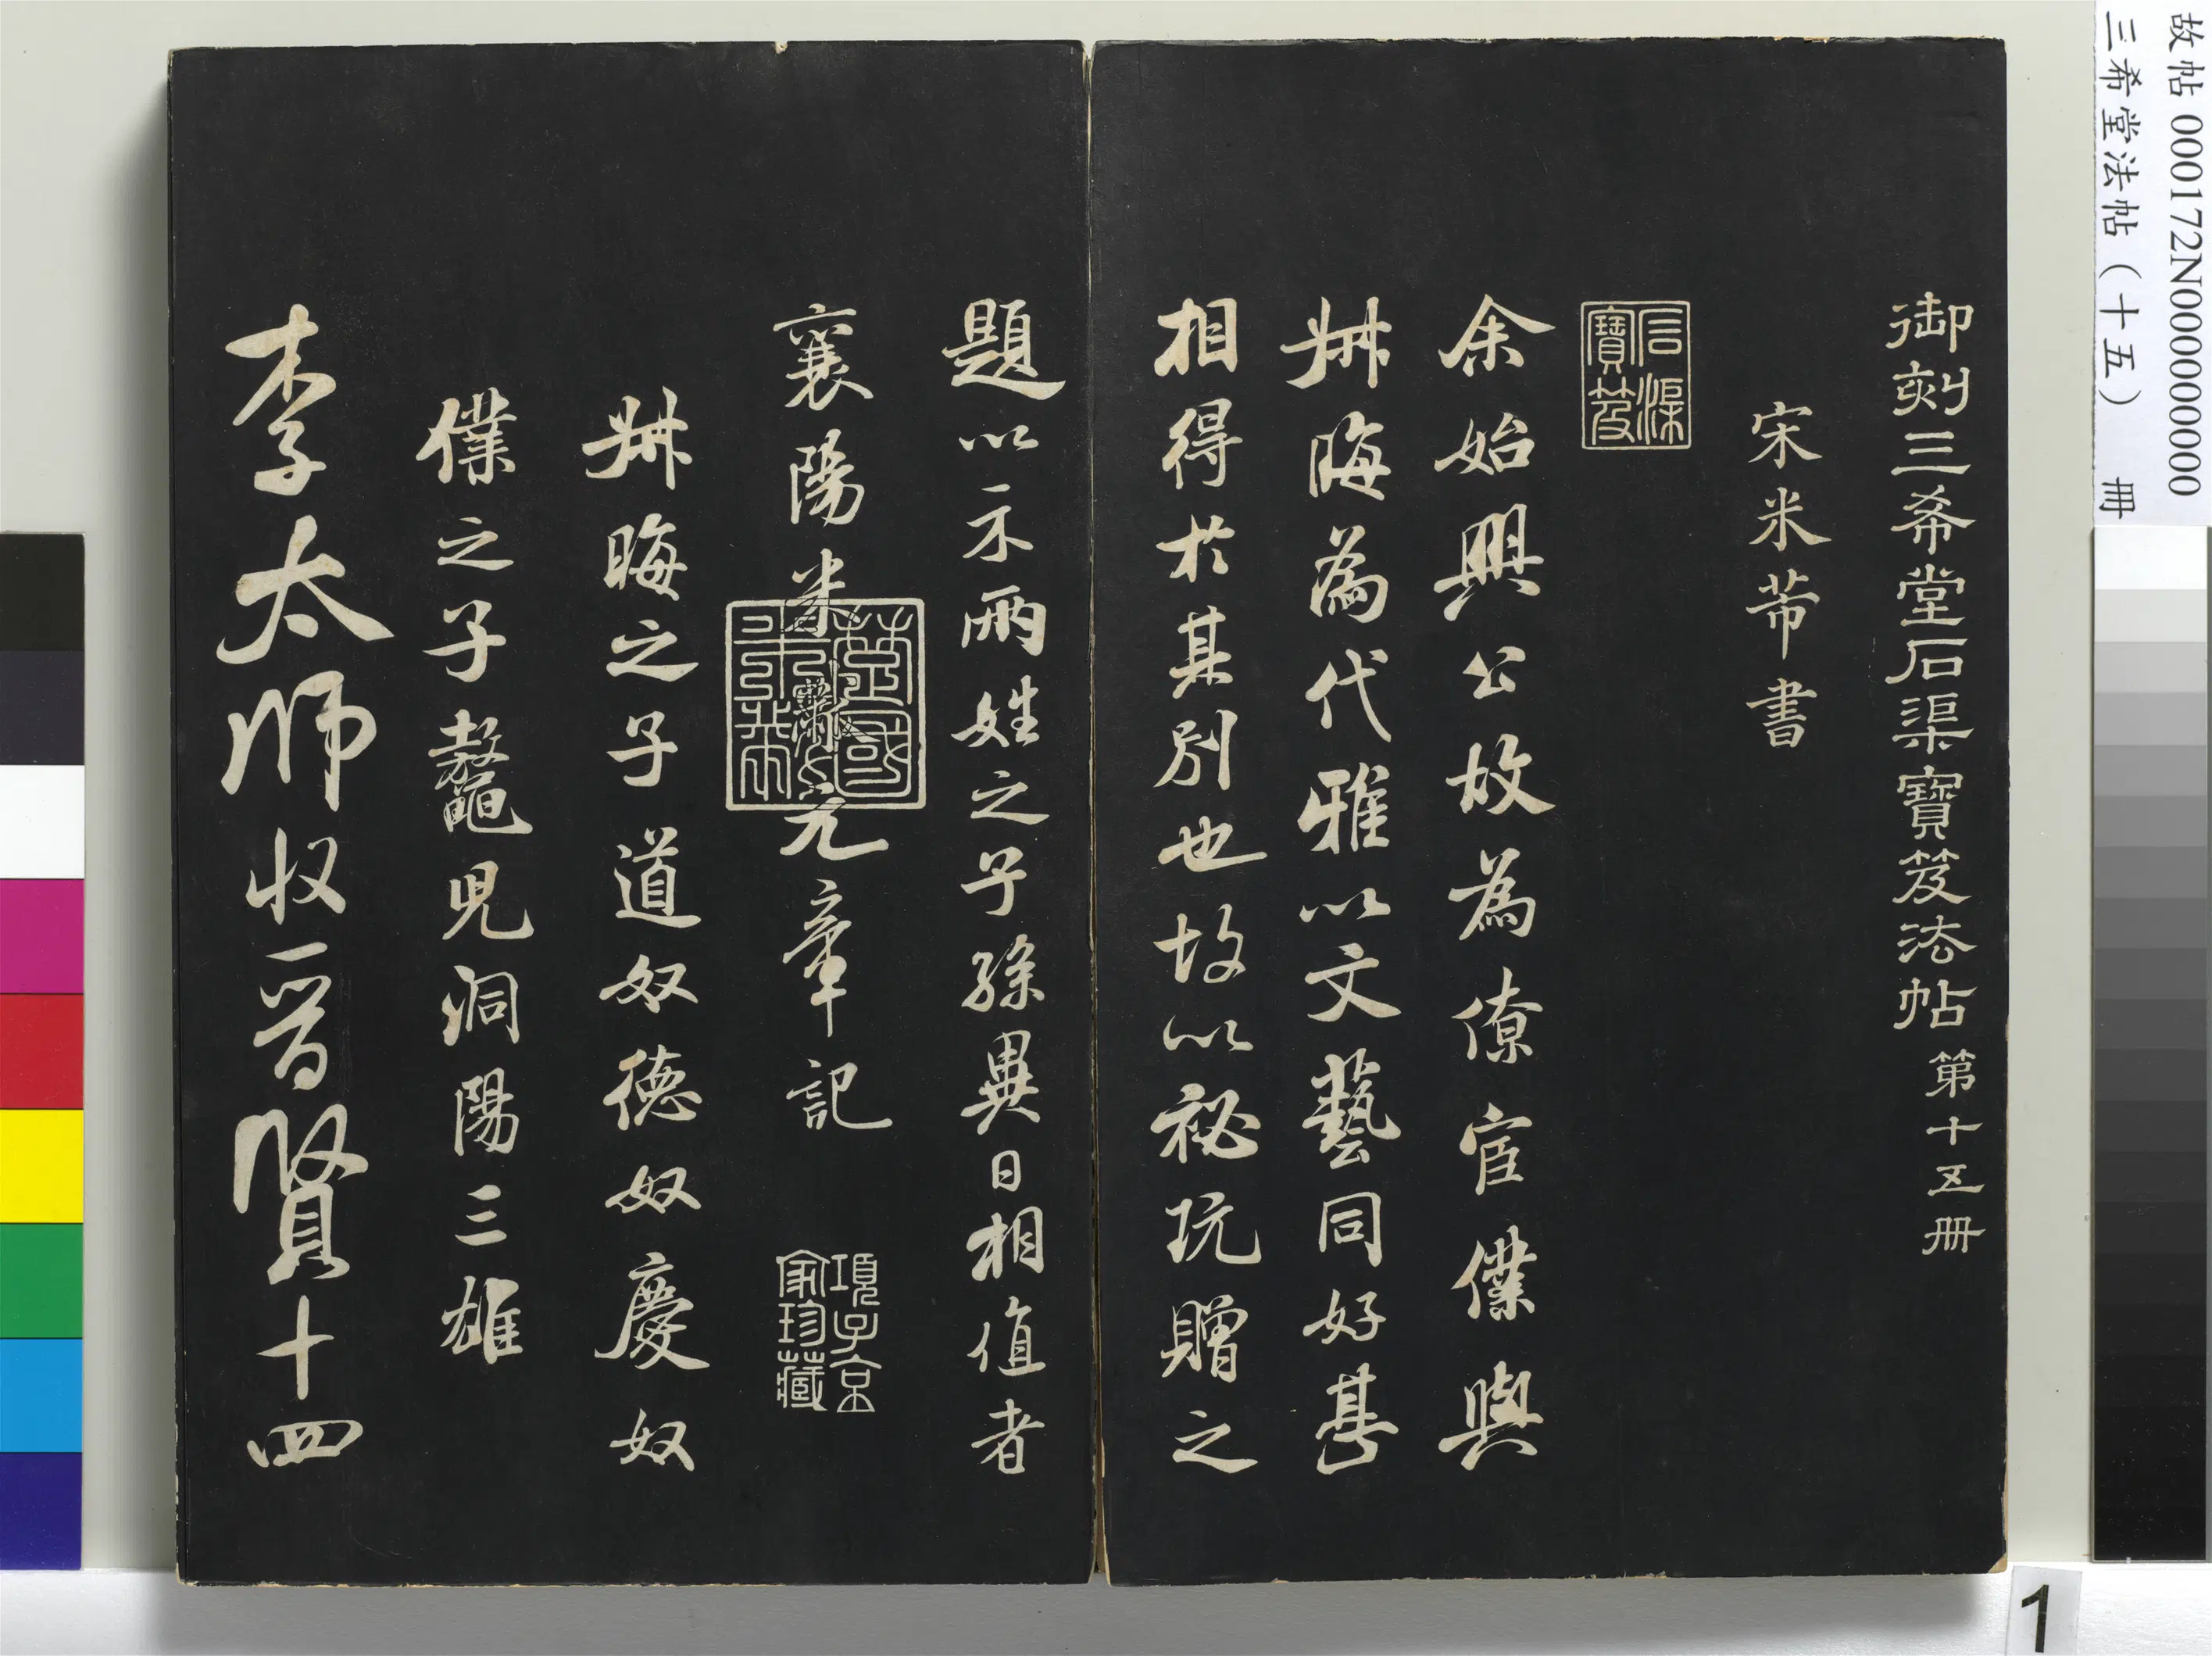 故帖 000172N000000000
三希堂法帖（十五） 冊
御刻三希堂石渠寶笈法帖 第十五冊
宋米芾書
石渠寶笈
余始興公故為僚宦僕與
叔晦為代雅以文藝同好甚
相得於其別也故以祕玩贈之
題以示兩姓之子孫異日相值者
襄陽米黻元章記
項子京家珍藏
叔晦之子道奴德奴慶奴
僕之子鼇兒洞陽三雄
李太師收晉賢十四
1